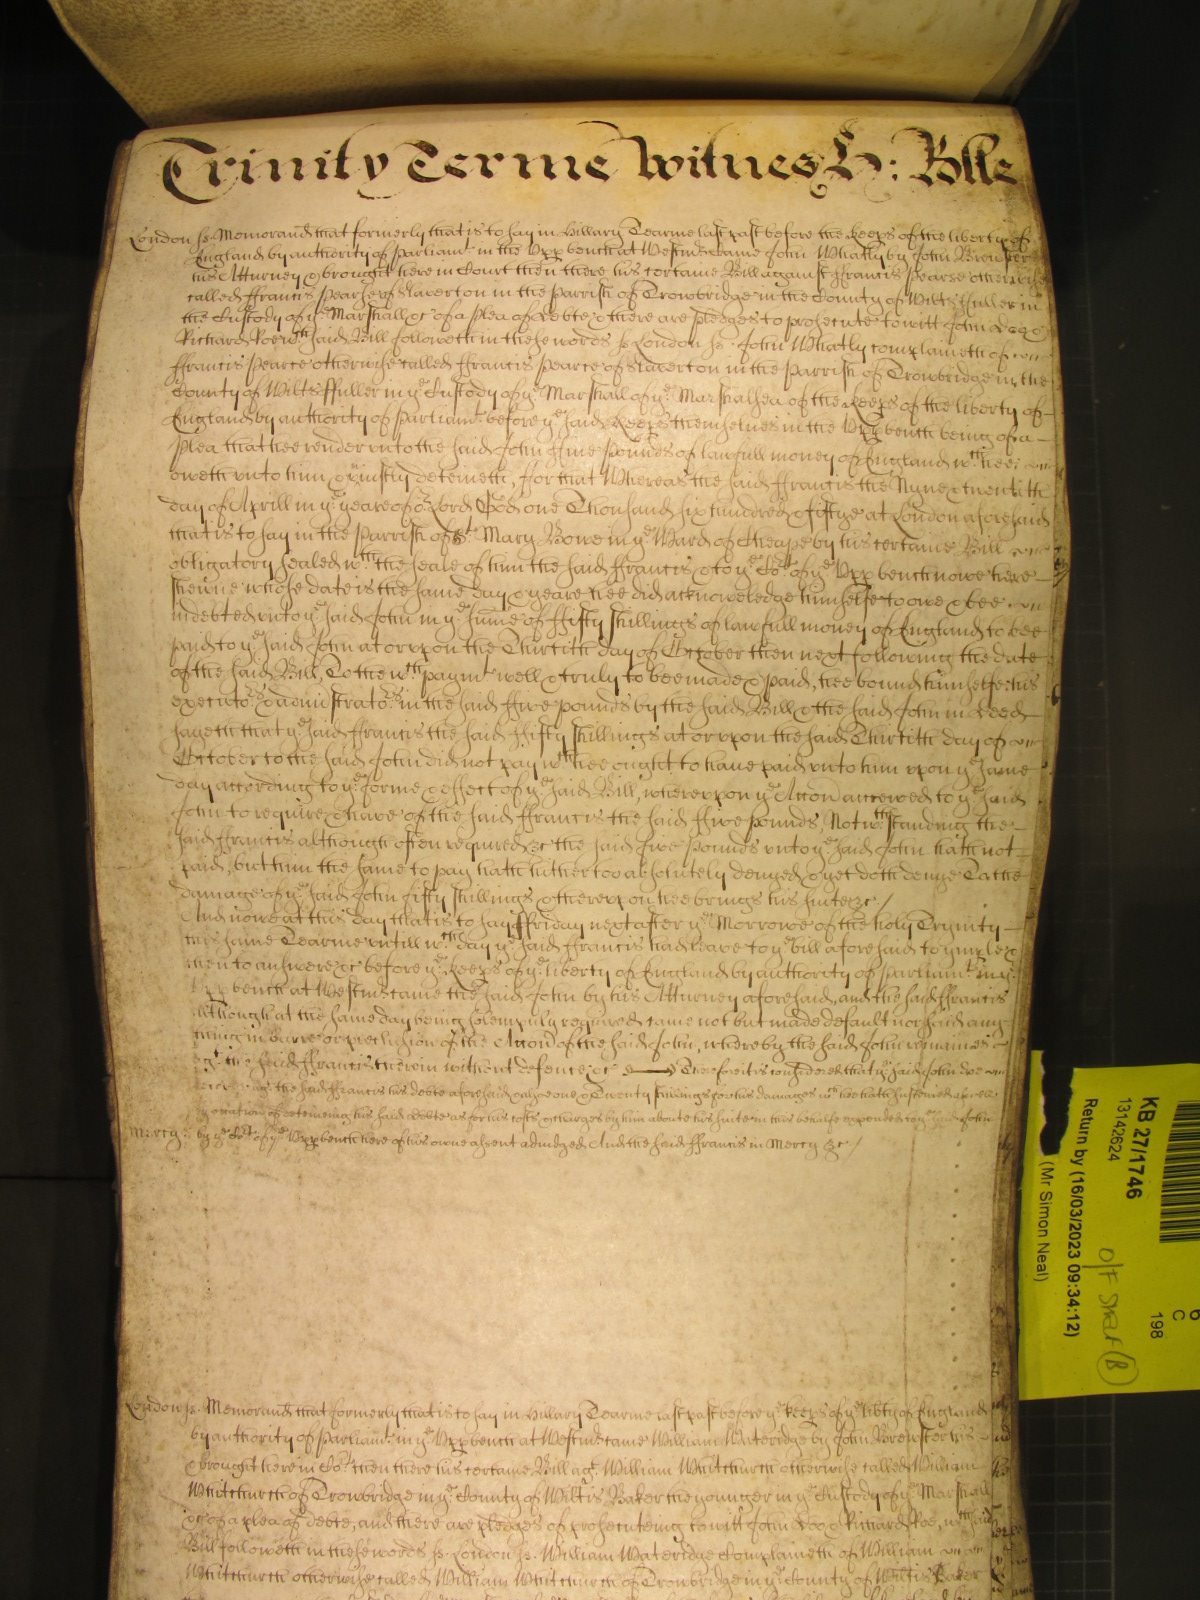 Trinity Terme Witnes H: Rolle
London ss. Memorand that formerly that is to say in Hillary Tearme last past before the Keeps of the liberty of
England by authority of Parliamt in the Upp bench at Westmr came John Whatly by John Brewster
his Atturney & brought here in Court then there his certaine Bill against ffrancis Pearse otherwise
called ffrancis Pearse of Slaverton in the Parrish of Trowbridge in the County of Wilts ffuller in
the Custody of ye Marshall &c of a plea of debte & there are pledges to prosecute to witt John Doe &
Richard Roe wch said Bill followeth in these words ss London ss. John Whatly complaineth of
ffrancis Pearce otherwise called ffrancis Pearce of Slaverton in the Parrish of Trowbridge in the
County of Wilts ffuller in ye Custody of ye Marshall of ye Marshalsea of the Keeps of the liberty of
England by authority of Parliamt before ye said Keeps themselves in the Upp bench being of a
Plea that hee render unto the said John ffive Pounds of lawfull money of England wch hee
oweth unto him & uniustly deteineth, ffor that Whereas the said ffrancis the Nyne & twentith
day of Aprill in ye yeare of or Lord God one Thousand six hundred & fiftye at London aforesaid
that is to say in the Parrish of St Mary Bowe in ye Ward of Cheape by his certaine Bill
obligatory sealed wth the seale of him the said ffrancis & to ye Cort of ye Upp bench nowe here
shewne whose date is the same day & yeare hee did acknowledge himselfe to owe & bee
indebted unto ye said John in ye summe of ffifty shillings of lawfull money of England to bee
paid to ye said John at or upon the Thirtith day of October then next following the date
of the said Bill, To the wch paymt well & truly to bee made & paid, hee bound himselfe his
executors & administrators in the said ffive pounds by the said Bill & the said John in deed
sayeth that ye said ffrancis the said ffifty shillings at or upon the said Thirtith day of
October to the said John did not pay wch hee ought to have paid unto him upon ye same
day according to ye forme & effect of ye said Bill, whereupon ye Accon accrewed to ye said
John to require & have of the said ffrancis the said ffive pounds, Notwthstanding the
said ffrancis although often required &c the said five Pounds unto ye said John hath not
paid, but him the same to pay hath hitherto absolutely denyed & yet doth denye To the
damage of ye said John fifty shillings & thereupon hee brings his suite &c /
And nowe at this day that is to say ffriday next after ye Morrowe of the holy Trynity
this same Tearme untill wch day ye said ffrancis had leave to ye bill aforesaid to imparle &
then to answere &c before ye Keeps of ye liberty of England by authority of Parliamt in ye
Upp bench at Westmr came the said John by his Atturney aforesaid, and the said ffrancis
although at the same day being solempnly required came not but made default nor said any
thing in barre or preclusion of the Accon of the said John, whereby the said John remaines
agt the said ffrancis therein without defence &c Therefore it is considered that ye said John doe
agt the said ffrancis his debte aforesaid & alsoe one & Twenty shillings for his damages wch hee hath susteined
occation of deteineing his said debte as for his costs & charges by him aboute his suite in this behalfe expended to ye said John
Mercy. by ye Cort of ye Upp bench here of his owne assent adiudged And the said ffrancis in Mercy &c /
London ss. Memorand that formerly that is to say in Hillary Tearme last past before ye keeps of ye libty of England
by authority of Parliamt in ye Upp bench at Westmr came William Wateridge by John Brewster his
& brought here in Cort then there his certaine Bill agt William Whitchurch otherwise called William
Whitchurch of Trowbridge in ye County of Wiltis Baker the younger in ye Custody of ye Marshall
&c of a plea of debte, and there are pledges of prosecuteing to witt John Doe & Richard Roe, wch said
Bill followeth in these words ss London ss. William Wateridge Complaineth of William
Whitchurch otherwise called William Whitchurch of Trowbridge in ye County of Wiltis Baker
KB 27/1746
13142624
Return by (16/03/2023 09:34:12)
(Mr Simon Neal)
198
C
6